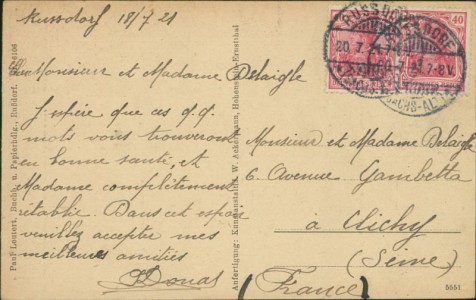 Russdorf 18/7 21
Cher Monsieur et Madame Delaigle
J'espère que ces q.q.
mots vous trouverons
en bonne santé, et
Madame complètement
rétablie. Dans cet espoir
veuillez accepter mes
meilleures amitiés
Donat
Monsieur et Madame Delaigle
6. Avenue Gambetta
à Clichy
(Seine)
(France)
Paul Leutert, Buchb. u. Papierhdlg., Rußdorf.
Anfertigung: Kunstanstalt W. Ackermann, Hohenstein-Ernstthal
5551
RUSSDORF
20. 7. 21. 7-8V.
SACHS-ALT
40